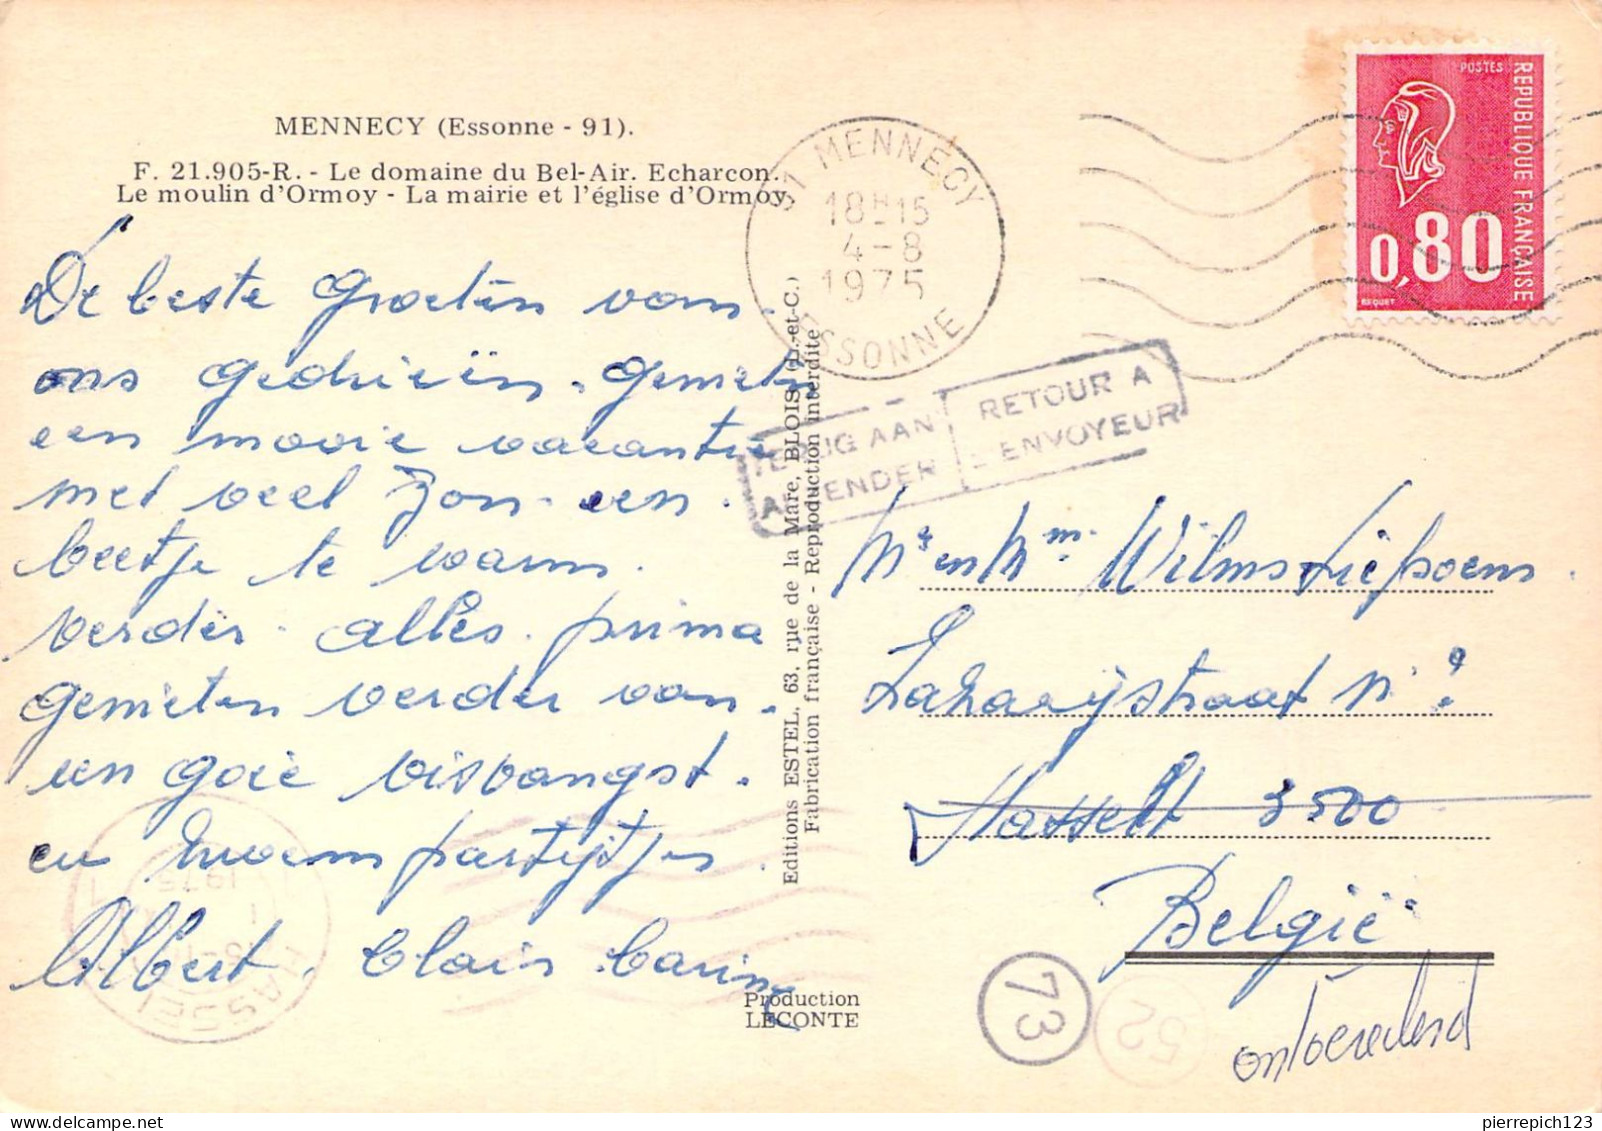 MENNECY (Essonne - 91).
F. 21.905-R. - Le domaine du Bel-Air. Echarcon.
Le moulin d'Ormoy - La mairie et l'église d'Ormoy
De beste groeten van
ons gedrieën. gemeten
een mooie vacantie
met veel zon. een
beetje te warm.
verder alles prima
gemeten verder van
een goie visvangst.
en zwempartijtjes.
Albert. Clair. Carin
91 MENNECY
18H15
4-8
1975
ESSONNE
POSTES
REPUBLIQUE FRANÇAISE
0,80
BEQUET
TERUG AAN
AFZENDER
RETOUR A
L'ENVOYEUR
Editions ESTEL, 63, rue de la Mare, BLOIS (L.-et-C.)
Fabrication française - Reproduction interdite
Mr en Mm. Wilms
straat n° ?
Hasselt 3500
België
onbekend
Production
LECONTE
73
52
HASSELT
1975
pierrepich123